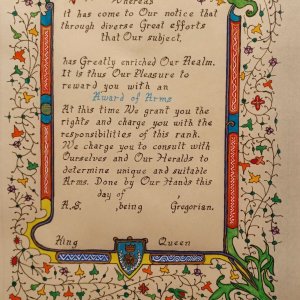 Whereas
it has come to Our notice that
through diverse Great efforts
that Our subject,
has Greatly enriched Our Realm.
It is thus Our Pleasure to
reward you with an
Award of Arms
At this time We grant you the
rights and charge you with the
responsibilities of this rank.
We charge you to consult with
Ourselves and Our Heralds to
determine unique and suitable
Arms. Done by Our Hands this
day of
A.S. ,being Gregorian.
King Queen